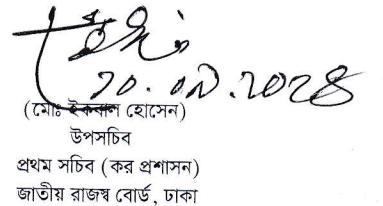 (মোঃ ইকবাল হোসেন)
উপসচিব
প্রথম সচিব (কর প্রশাসন)
জাতীয় রাজস্ব বোর্ড, ঢাকা